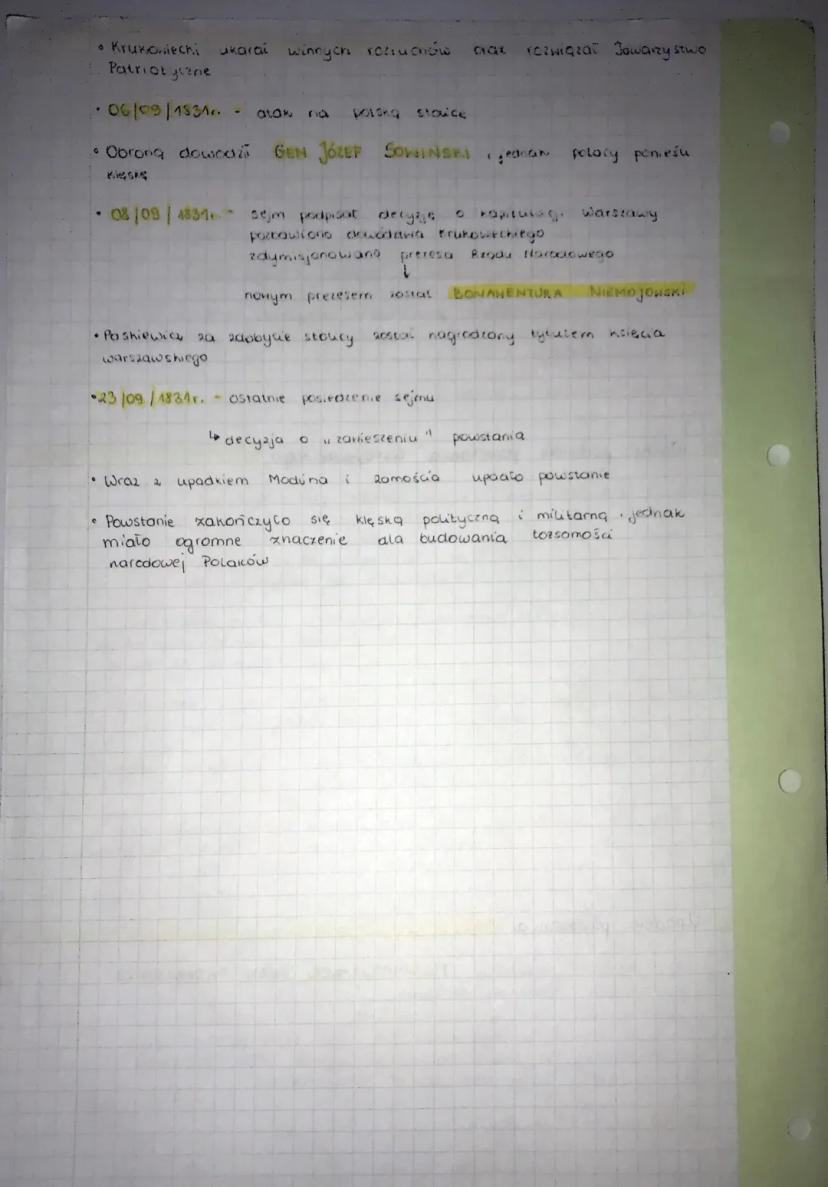 • Krukowiecki ukarał winnych rozruchów oraz rozwiązał Towarzystwo
Patriotyczne
• 06/09/1831r. - atak na polską stolicę
• Obroną dowodził GEN JÓZEF SOWIŃSKI, jednak polacy ponieśli
klęskę
• 08/09/1831r. - sejm podpisał decyzję o kapitulacji Warszawy
pozbawiono dowodzenia Krukowieckiego
zdymisjonowano prezesa Rządu Narodowego
↓
nowym prezesem został BONAWENTURA NIEMOJOWSKI
• Paskiewicz za zdobycie stolicy został nagrodzony tytułem księcia
warszawskiego
• 23/09/1831r. - ostatnie posiedzenie sejmu
↳ decyzja o "zawieszeniu" powstania
• Wraz z upadkiem Modlina i Zamościa upadło powstanie
• Powstanie zakończyło się klęską polityczną i militarną, jednak
miało ogromne znaczenie dla budowania tożsamości
narodowej Polaków